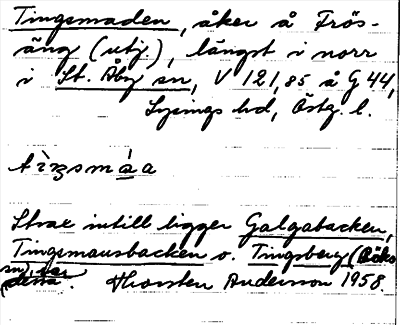 Tingsmaden, åker å Frös-
äng (utj.), längst i norr
i St. Åby sn, V 121,85 å G 44,
Lysings hd, Östg. l.
tìŋsmáa
Strax intill ligger Galgabacken,
Tingsmansbacken o. Tingsberg (Röks
sn), se
dessa. Thorsten Andersson 1958.